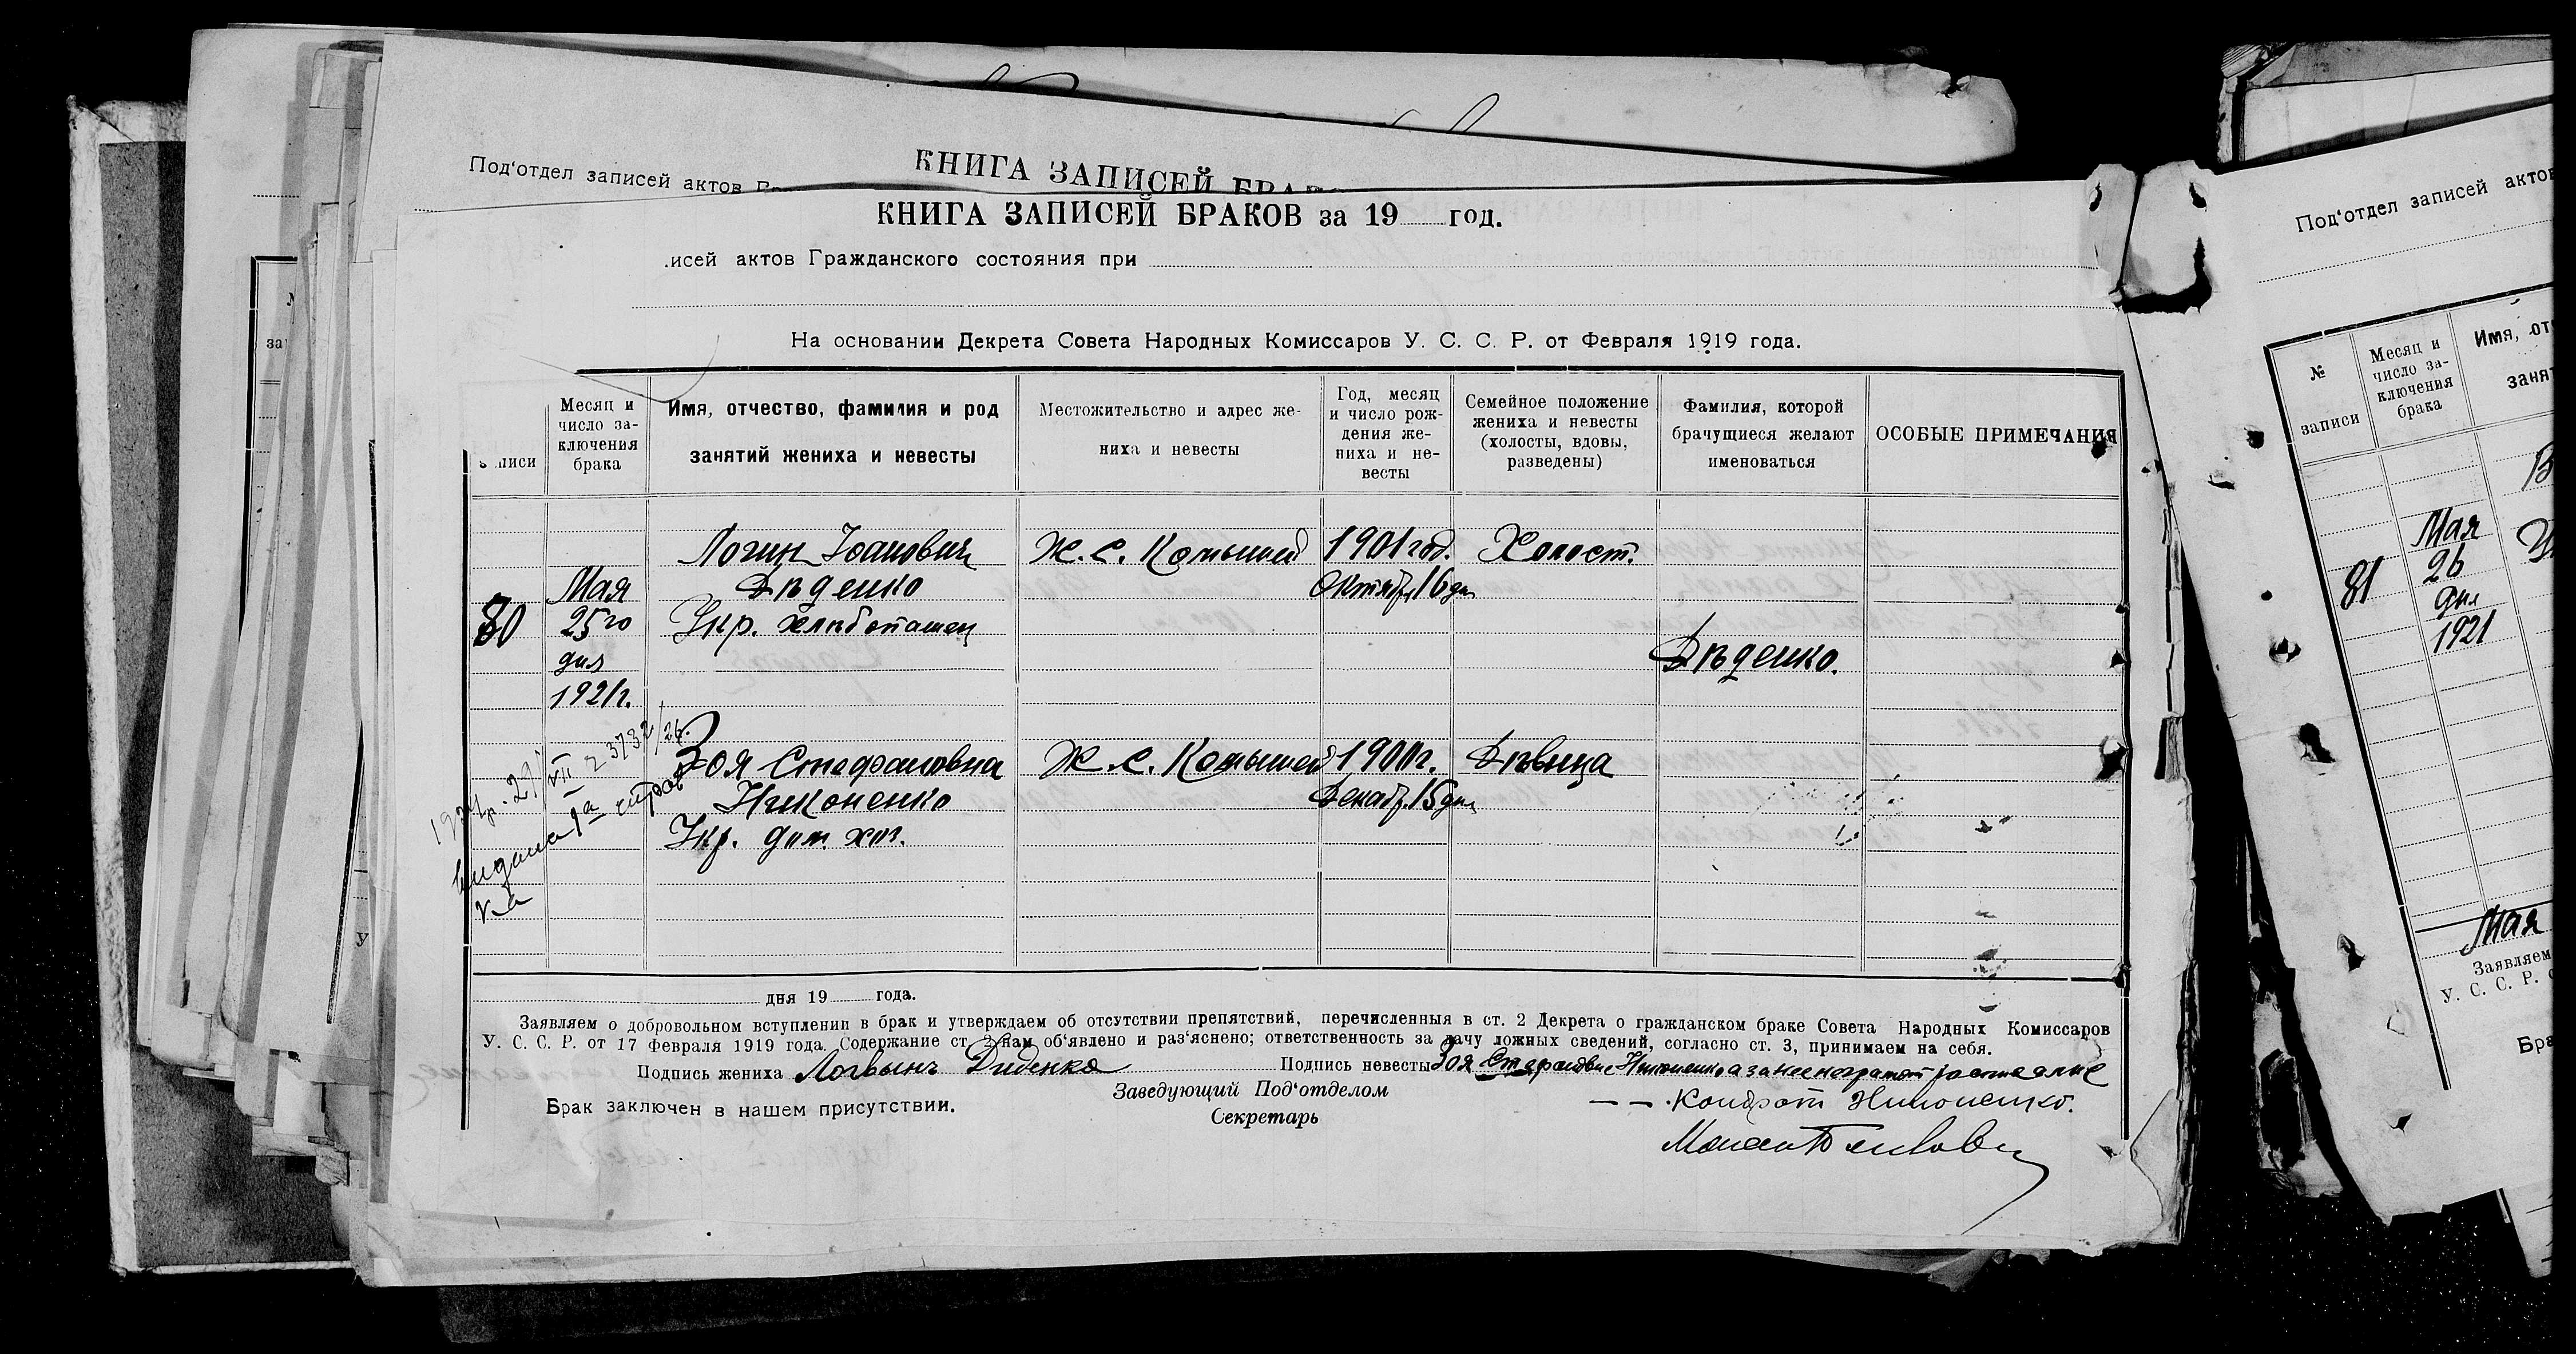 Под‘отдел записей актов
КНИГА ЗАПИСЕЙ
КНИГА ЗАПИСЕЙ БРАКОВ за 19 год.
исей актов Гражданского состояния при
На основании Декрета Совета Народных Комиссаров У. С. С. Р. от Февраля 1919 года.
писи
Месяц и число заключения брака
Имя, отчество, фамилия и род занятий жениха и невесты
Местожительство и адрес жениха и невесты
Год, месяц и число рождения жениха и невесты
Семейное положение жениха и невесты (холосты, вдовы, разведены)
Фамилия, которой брачущиеся желают именоваться
ОСОБЫЕ ПРИМЕЧАНИЯ
80
Мая
25го
дня
1921г.
Логин Іоанович
Дѣденко
Укр. хлѣбопашец
Ж. С. Комышей
1901 год.
Октябр. 16 дн
Холост.
Дѣденко.
Зоя Стефановна
Никоненко
Укр. дом. хоз.
Ж. С. Комышей
Декабр. 15 дн
Дѣвица
3732/26.
дня 19 года.
Заявляем о добровольном вступлении в брак и утверждаем об отсутствии препятствий, перечисленныя в ст. 2 Декрета о гражданском браке Совета Народных Комиссаров
У. С. С. Р. от 17 Февраля 1919 года. Содержание ст. 2 нам об‘явлено и раз‘яснено; ответственность за дачу ложных сведений, согласно ст. 3, принимаем на себя.
Подпись жениха Логвынъ Диденко
Подпись невесты Зоя Стефановне Никоненко а за нее неграмот
Кондрат Никоненко.
Брак заключен в нашем присутствии.
Заведующий Под‘отделом
Секретарь
Под‘отдел записей актов
№ записи
Месяц и число заключения брака
Имя,
81
Мая
26
дня
1921
Мая
Заявляем
У. С. С. Р.